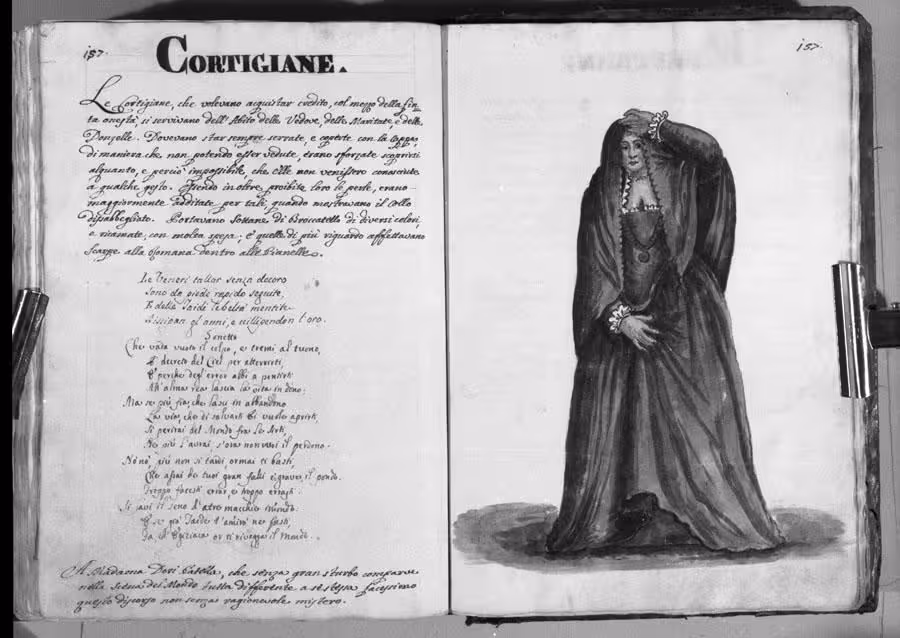 157.
157.
CORTIGIANE.
Le Cortigiane, che volevano acquistar credito, col mezzo della fin-
ta onestà, si servivano dell'Abito delle Vedove, delle Maritate, e delle
Donzelle. Dovevano star sempre serrate, e coperte con la Cappa,
di maniera che non potendo esser vedute, erano sforzate scoprirsi
alquanto, e perciò impossibile, che elle non venissero conosciute
a qualche gesto. Essendo inoltre proibite loro le perle, erano
maggiormente additate per tale, quando mostravano il Collo
disabbegliato. Portavano Sottane di Broccatello di diversi colori,
e ricamate con molta spesa; e quelle di più riguardo affettavano
Scarpe alla Romana dentro alle Pianelle.
Le Veneri tallor senza decoro
Sono da piede rapido seguite,
E delle Taidi le beltà mentite
gl'anni, e l'oro.
Sonetto
Che vada vuoto il colpo, e tremi al tuono,
È decreto del Ciel per atterrirti,
E perche degl'error abbi a pentirti
Un'alma rea lascia la vita in dono:
Ma se più fia, che lasci in abbandono
La via, che di salvarti Ei vuole aprirti,
Si perirai del Mondo fra le Sirti,
Ne più l'avrai, s'ora non vuoi il perdono.
Nò nò, più non si tardi, ormai ti basti,
Che assai de tuoi gran falli è grave il pondo.
Troppo facesti error, e troppo errasti.
Si lavi il seno d'atre macchie immondo:
E se più Taide t'amirò ne' fasti,
Da Egiziaca or ti rivegga il Mondo.
A Madama Dori Catella, che senza gran sturbo comparve
nella Scena del Mondo tutta differente a sè stessa facessimo
questo discorso non senza ragionevole mistero.